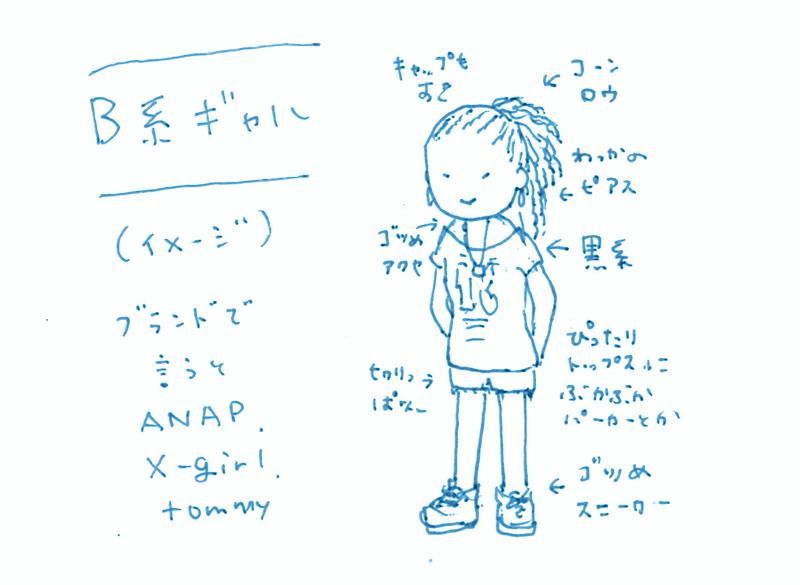 B系ギャル
(イメージ)
ブランドで
言うと
ANAP.
X-girl.
tommy
キャップも
すき
コーン
ロウ
わっかの
ピアス
ゴツめ
アクセ
黒系
ぴったり
トップスに
ぶかぶか
パーカーとか
ゴツめ
スニーカー